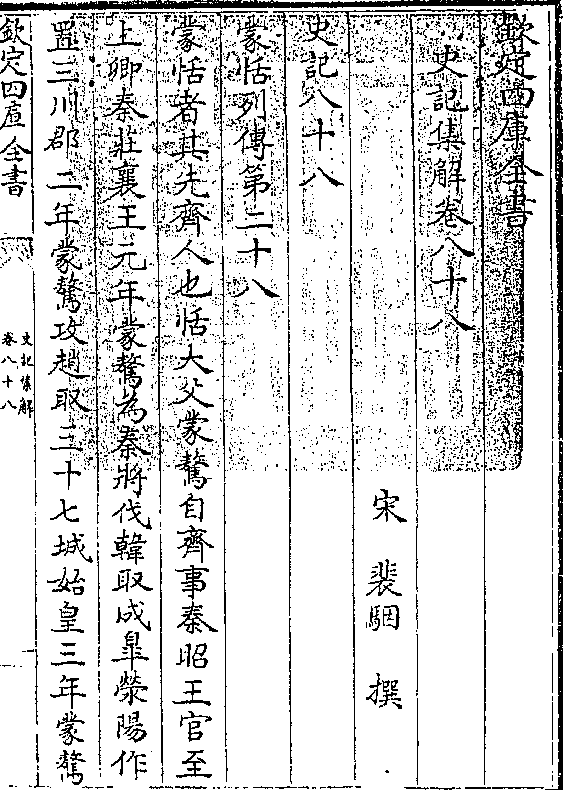 欽定四庫全書
史記集解卷八十八
宋 裴駰 撰
史記八十八
蒙恬列傳第二十八
蒙恬者其先齊人也恬大父蒙驁自齊事秦昭王官至
上卿秦莊襄王元年蒙驁為秦將伐韓取成臯滎陽作
置三川郡二年蒙驁攻趙取三十七城始皇三年蒙驁
欽定四庫全書
史記集解
卷八十八